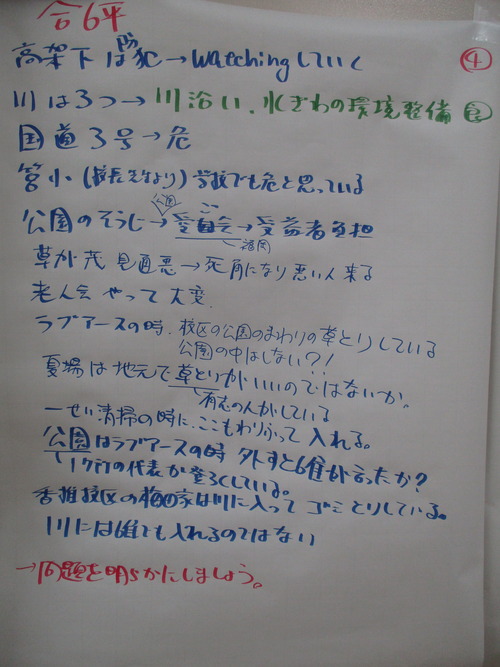 合6平
④
高架下は防犯→watchingしていく
川は3つ→川沿い、水ぎわの環境整備
国道3号→危
筥小(校長先生より)学校でも危と思っている
公園
公園のそうじ→愛自会→受益者負担
見直悪→死角になり悪い人来る
老人会やって大変.
ラブアースの時.校区の公園のまわりの草とりしている
公園の中はしない?!
夏場は地元で草とりがいいのではないか。
有志の人がしている
一せい清掃の時に、ここもわりふって入れる。
公園はラブアースの時外すと誰が言ったか?
の代表が登ろくしている。
香椎校区の梅田家は川に入ってゴミとりしている。
川には誰でも入れるのではない
→問題を明らかにしましょう。